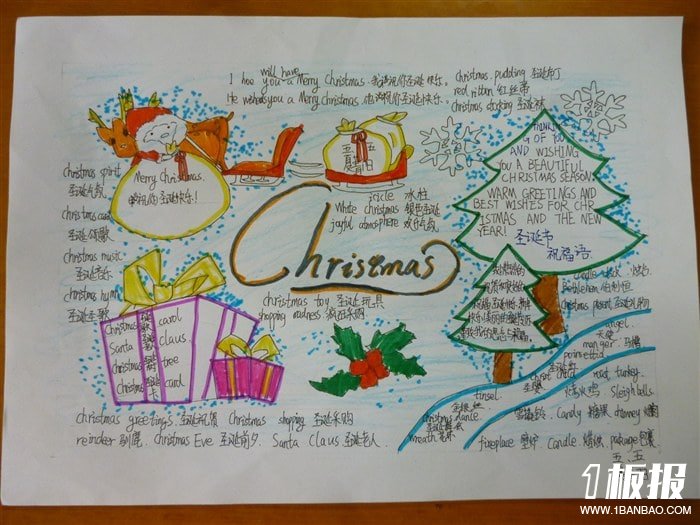 will have
I hoe you a Merry Christmas. 我满祝你圣诞快乐.
He wishes you a Merry Christmas. 他满祝你圣诞快乐.
christmas pudding 圣诞布丁
red ribbon 红丝带
christmas stocking 圣诞袜
christmas spirit
christmas carol
圣诞颂歌
christmas music
圣诞音乐
christmas hymn
圣诞圣歌
Merry Christmas.
祝你圣诞快乐!
icicle 冰柱
White christmas 银色圣诞
joyful atmosphere 欢乐气氛
Christmas
THINKING
OF YOU
AND WISHING
YOU A BEAUTIFUL
CHRISTMAS SEASON
WARM GREETINGS AND
BEST WISHES FOR CHR
ISTMAS AND THE NEW
YEAR!
圣诞节
祝福语.
christmas toy 圣诞玩具
shopping madness 疯狂采购
Christmas carol
Santa claus.
Christmas tree
Christmas card
candle
Bethlehem 伯利恒
christmas present 圣诞礼物
angel.
天使
manger 马槽
christ child
圣婴
roast, turkey.
烤火鸡
Sleigh bells.
tinsel
christmas dance
圣诞舞会
wreath 花环
Candy 糖果
chimney 烟囱
fireplace 壁炉
Candle. 蜡烛
package 包裹
christmas greetings. 圣诞祝贺
Christmas shopping 圣诞采购
reindeer 驯鹿.
Christmas Eve 圣诞前夕.
Santa Claus 圣诞老人.
五、五
1板报
WWW.1BANBAO.COM